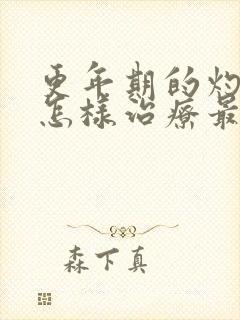 更年期的灼
怎样治疗最
森下真